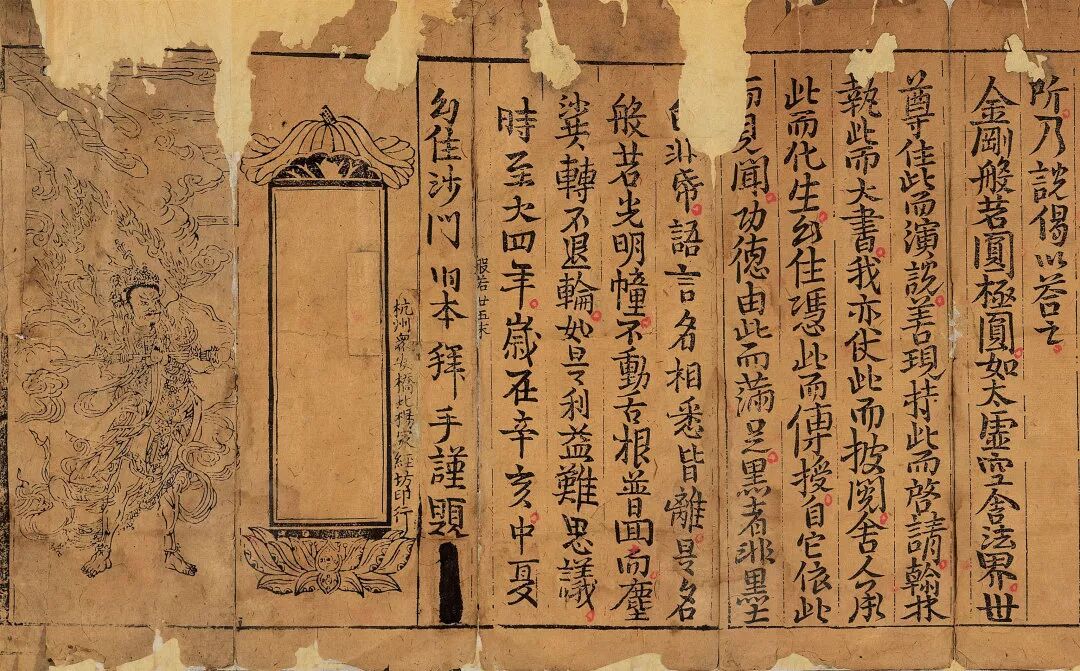 所乃說偈以荅之
金剛般若圓極圓如太虛空含法界世
尊住此而演說善現持此而啓請翰林
執此而大書我亦仗此而披閱舍人承
此而化生幻住馮此而傳授自它依此
而見聞功德由此而滿足黑者非墨
非帋語言名相悉皆離是名
般若光明幢不動舌根普回向塵
沙共轉不退輪如是利益難思議
時至大四年歲在辛亥中夏
般若廿五末
幻住沙門明本拜手謹題
杭州眾安橋北楊家經坊印行